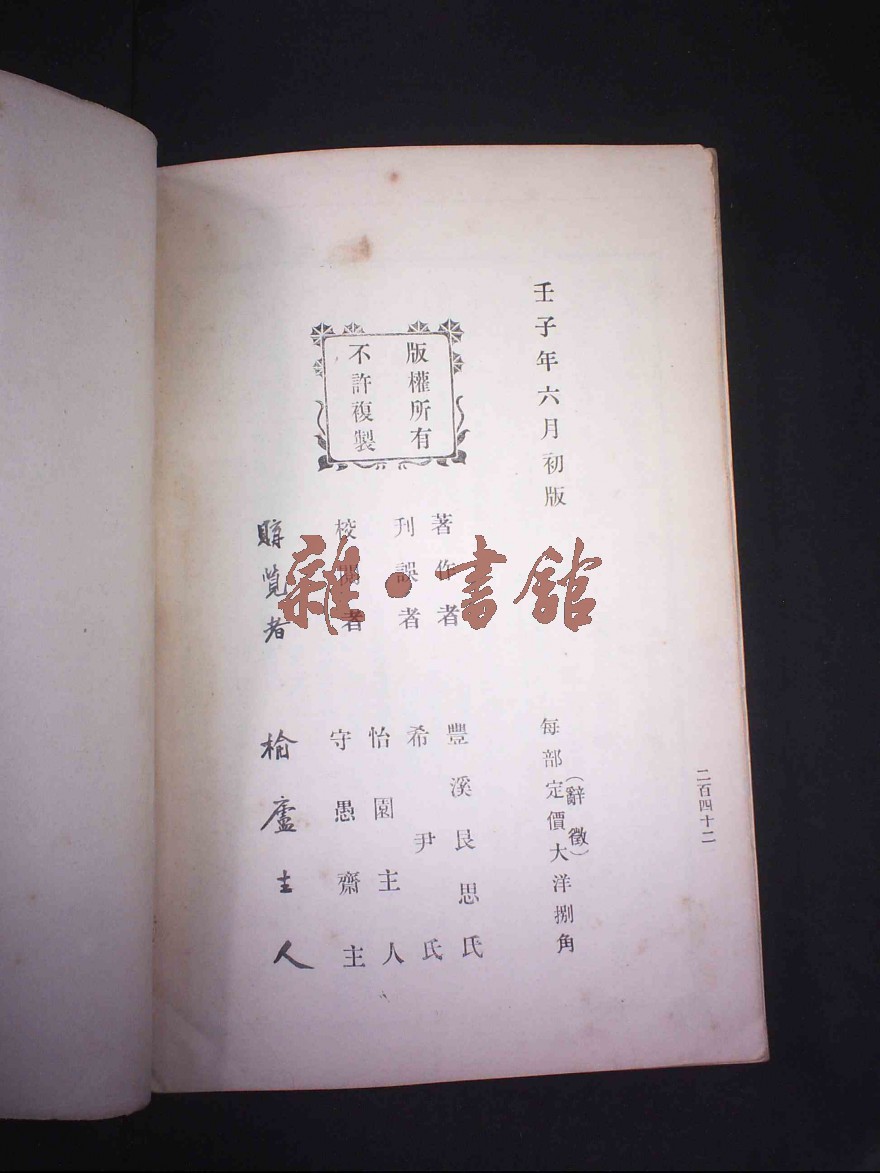 二百四十二
壬子年六月初版
每部定價大洋捌角
（辭徵）
版權所有
不許複製
著作者 豐溪艮思氏
刊誤者 希尹氏
校閱者 怡園主人
守愚齋主
覧者 榆廬主人
雜·書館